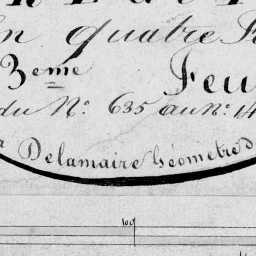 en quatre F
3eme Feu
du N° 635 au N° 14
Delamaire Géometre D